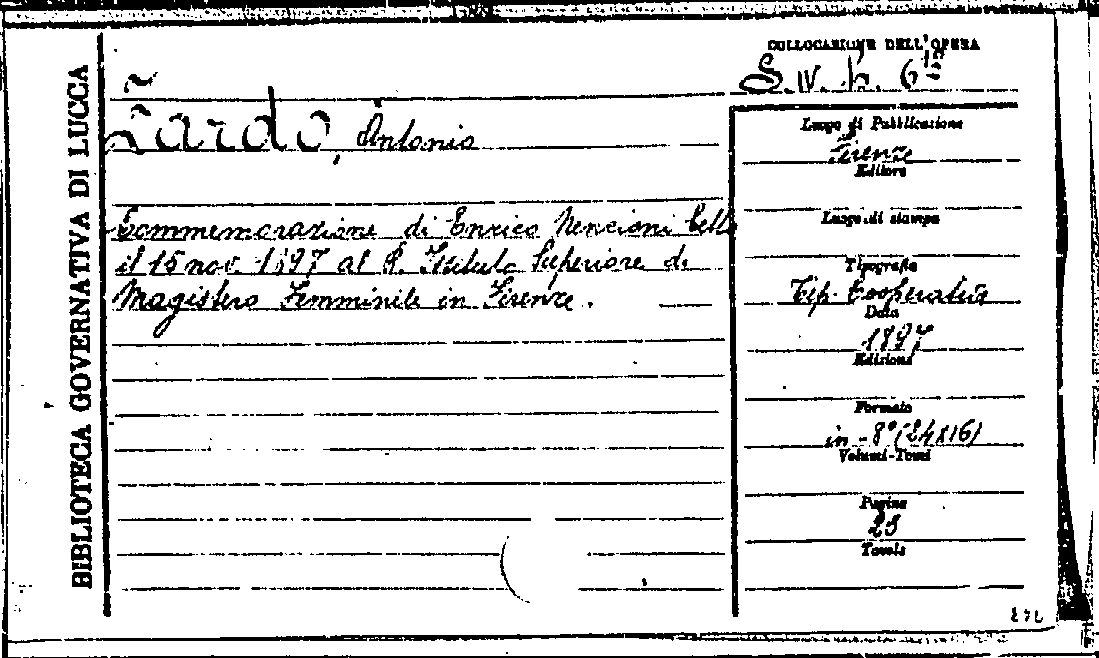 BIBLIOTECA GOVERNATIVA DI LUCCA
COLLOCAZIONE DELL'OPERA
Zardo, Antonio
Commemorazione di Enrico Nencioni letta
il 15 nov. 1897 al R. Istituto Superiore di
Magistero Femminile in Firenze.
Luogo di Pubblicazione
Firenze
Editore
Luogo di stampa
Tipografia
Tip. Cooperativa
Data
1897
Edizione
Formato
in-8° (24x16)
Volumi-Tomi
Pagine
23
Tavole